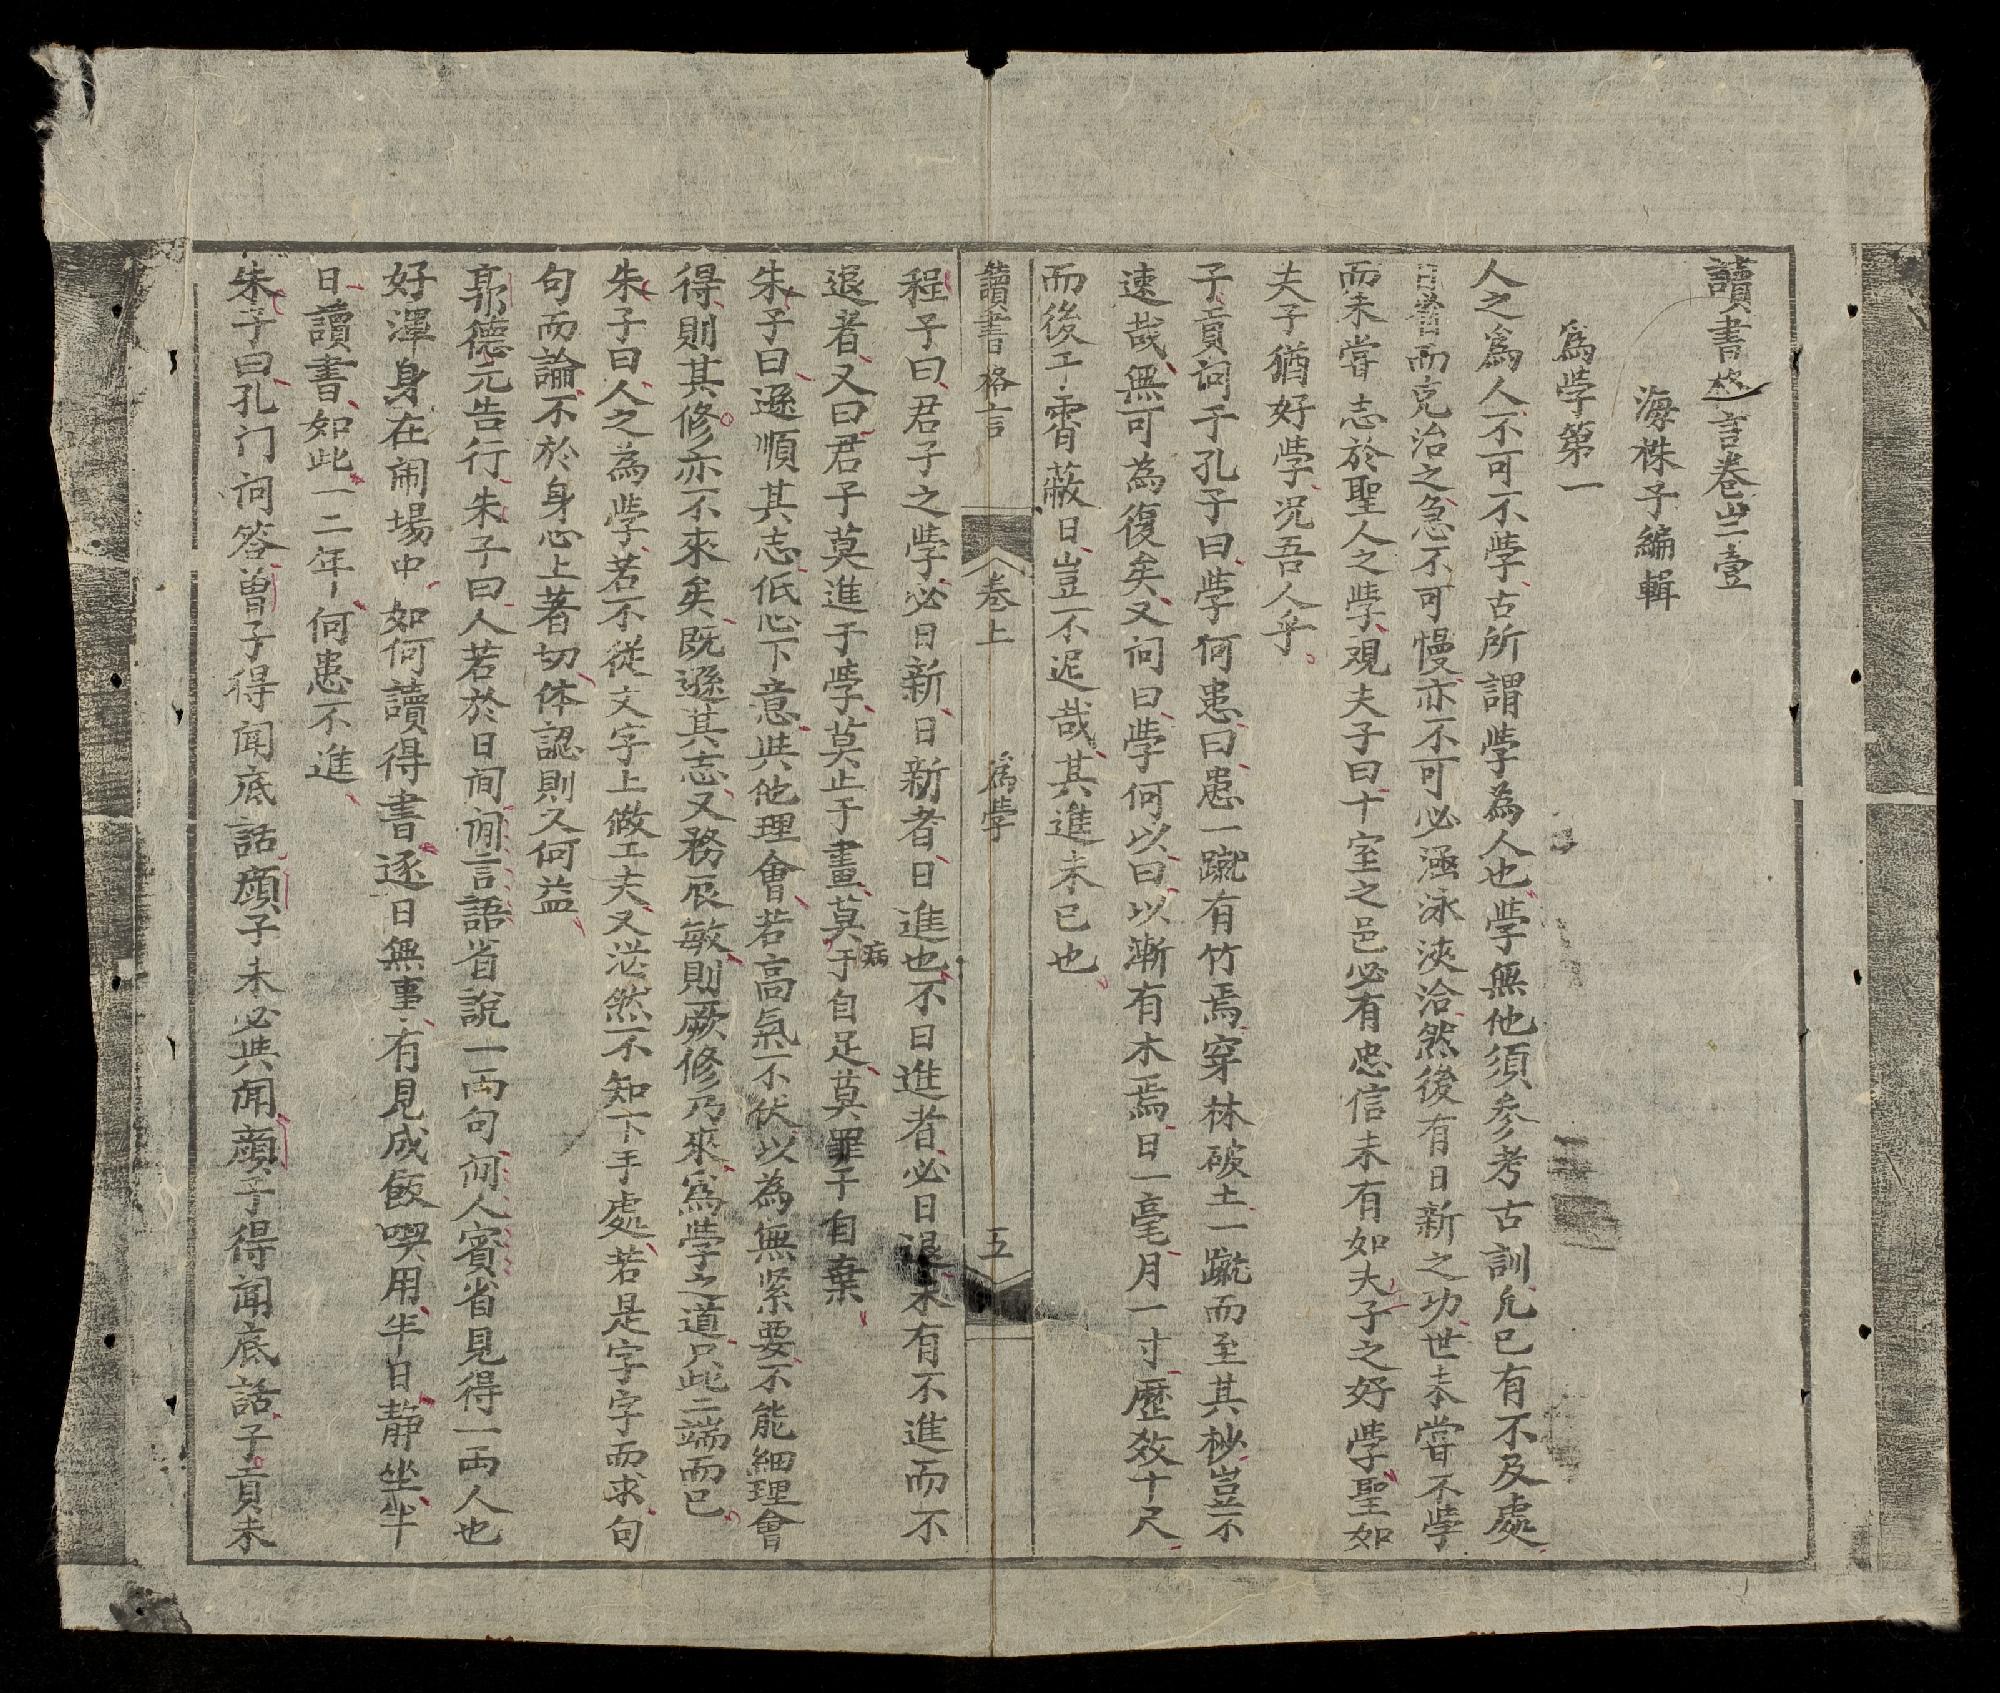 讀書格言卷之壹
海株子編輯
為斈第一
人之爲人不可不斈古所謂斈為人也斈無他須參考古訓允已有不及處
日當而克治之急不可慢亦不可必涵泳浹洽然後有日新之功世未嘗不斈
而未甞志於聖人之斈覌夫子曰十室之邑必有忠信未有如夫子之好斈聖如
夫子猶好斈况吾人乎
子貢问于孔子曰斈何患曰患一蹴有竹焉穿林破土一蹴而至其杪豈不
速哉無可為復矣又问曰斈何以曰以漸有木焉日一毫月一寸歷效十尺
而後工霄蔽日豈不泥哉其進未已也
讀書格言 卷上 爲斈 五
程子曰君子之斈必日新日新者日進也不日進者必日退未有不進而不
退者又曰君子莫進于斈莫止于畫莫病于自足莫罪于自棄
朱子曰遜順其志低心下意與他理會若高氣不伏以為無緊要不能細理會
得則其修亦不來矣既遜其志又務辰敏則厥修乃來爲斈之道只此二端而已
朱子曰人之為斈若不從文字上做工夫又茫然不知下手處若是字字而求句
句而論不於身心上著切体認則又何益
郭德元告行朱子曰人若於日间闲言語省說一両句问人賓省見得一両人也
好渾身在闹場中如何讀得書逐日無事有見成飯喫用半日静坐半
日讀書如此一二年何患不進
朱子曰孔门问答曾子得闻底話顔子未必與闻顔子得闻底話子貢未